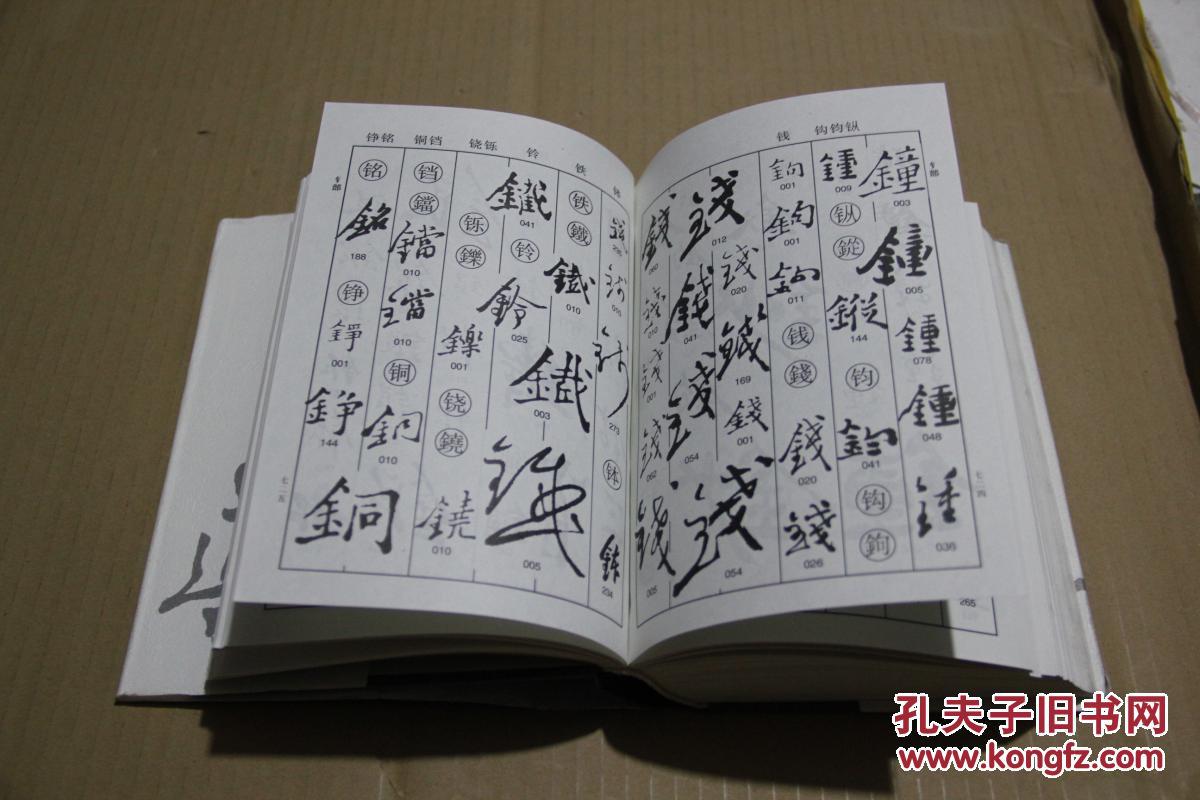 钱 钩钧鈲
钅部
鐘
003
鍾
005
鍾
078
鍾
048
鍾
036
七二四
鍾
009
㊎
鏦
144
钧
鈞
041
钩
鉤
鉤
001
鉤
001
鉤
011
钱
錢
錢
020
錢
026
錢
012
錢
020
錢
169
錢
001
錢
054
錢
錢
041
錢
054
錢
001
錢
052
錢
005
铮铭 铜铛 铙铄 铃 铁
钅部
273
钵
鉢
234
铁
鐵
鐵
010
鐵
003
鐵
005
鐵
041
铃
鈴
025
铄
鑠
鑠
001
铙
鐃
鐃
010
铛
鐺
鐺
010
鐺
010
铜
銅
010
铭
銘
188
铮
錚
001
錚
144
銅
七二五
265
孔夫子旧书网
www.kongfz.com